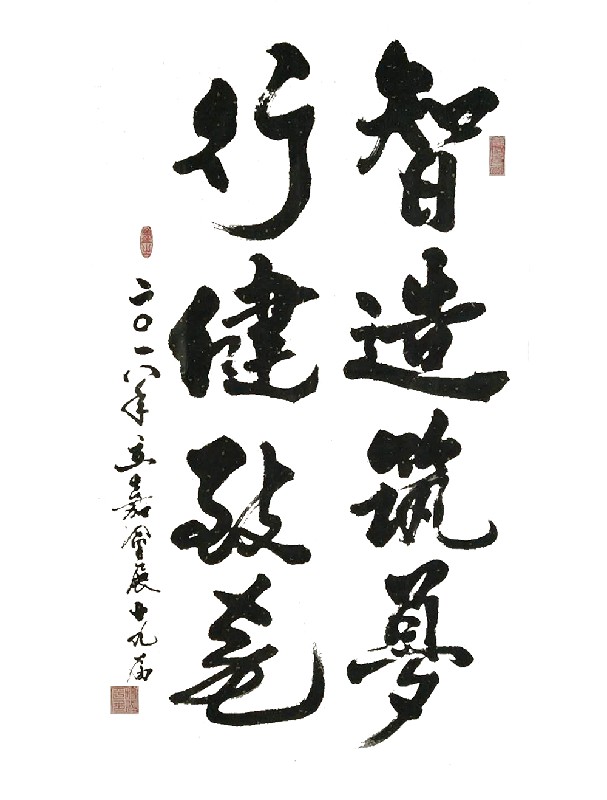 智造筑夢
行健致
二〇一八年立嘉會展十九届